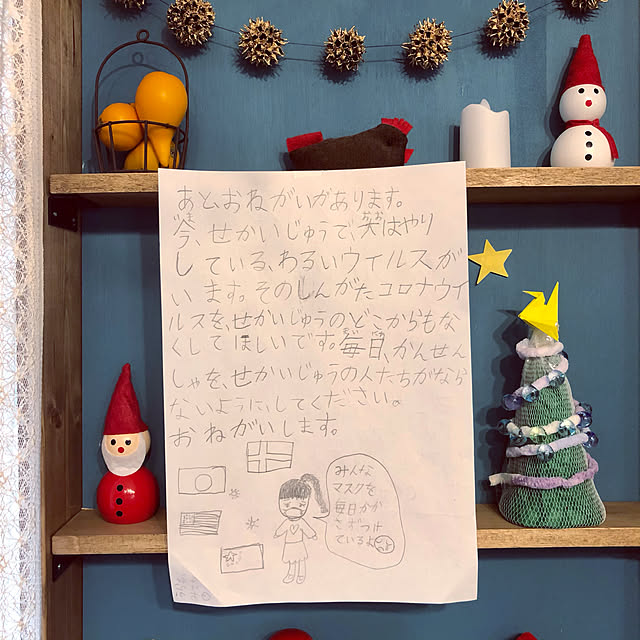 あと、おねがいがあります。
今、せかいじゅうで、大はやり
している、わるいウイルスが
います。そのしんがたコロナウイ
ルスを、せかいじゅうのどこからもな
くしてほしいです。毎日、かんせん
しゃを、せかいじゅうの人たちがなら
ないようにしてください。
おねがいします。
みんな
マスクを
毎日かか
さずつけ
ているよ